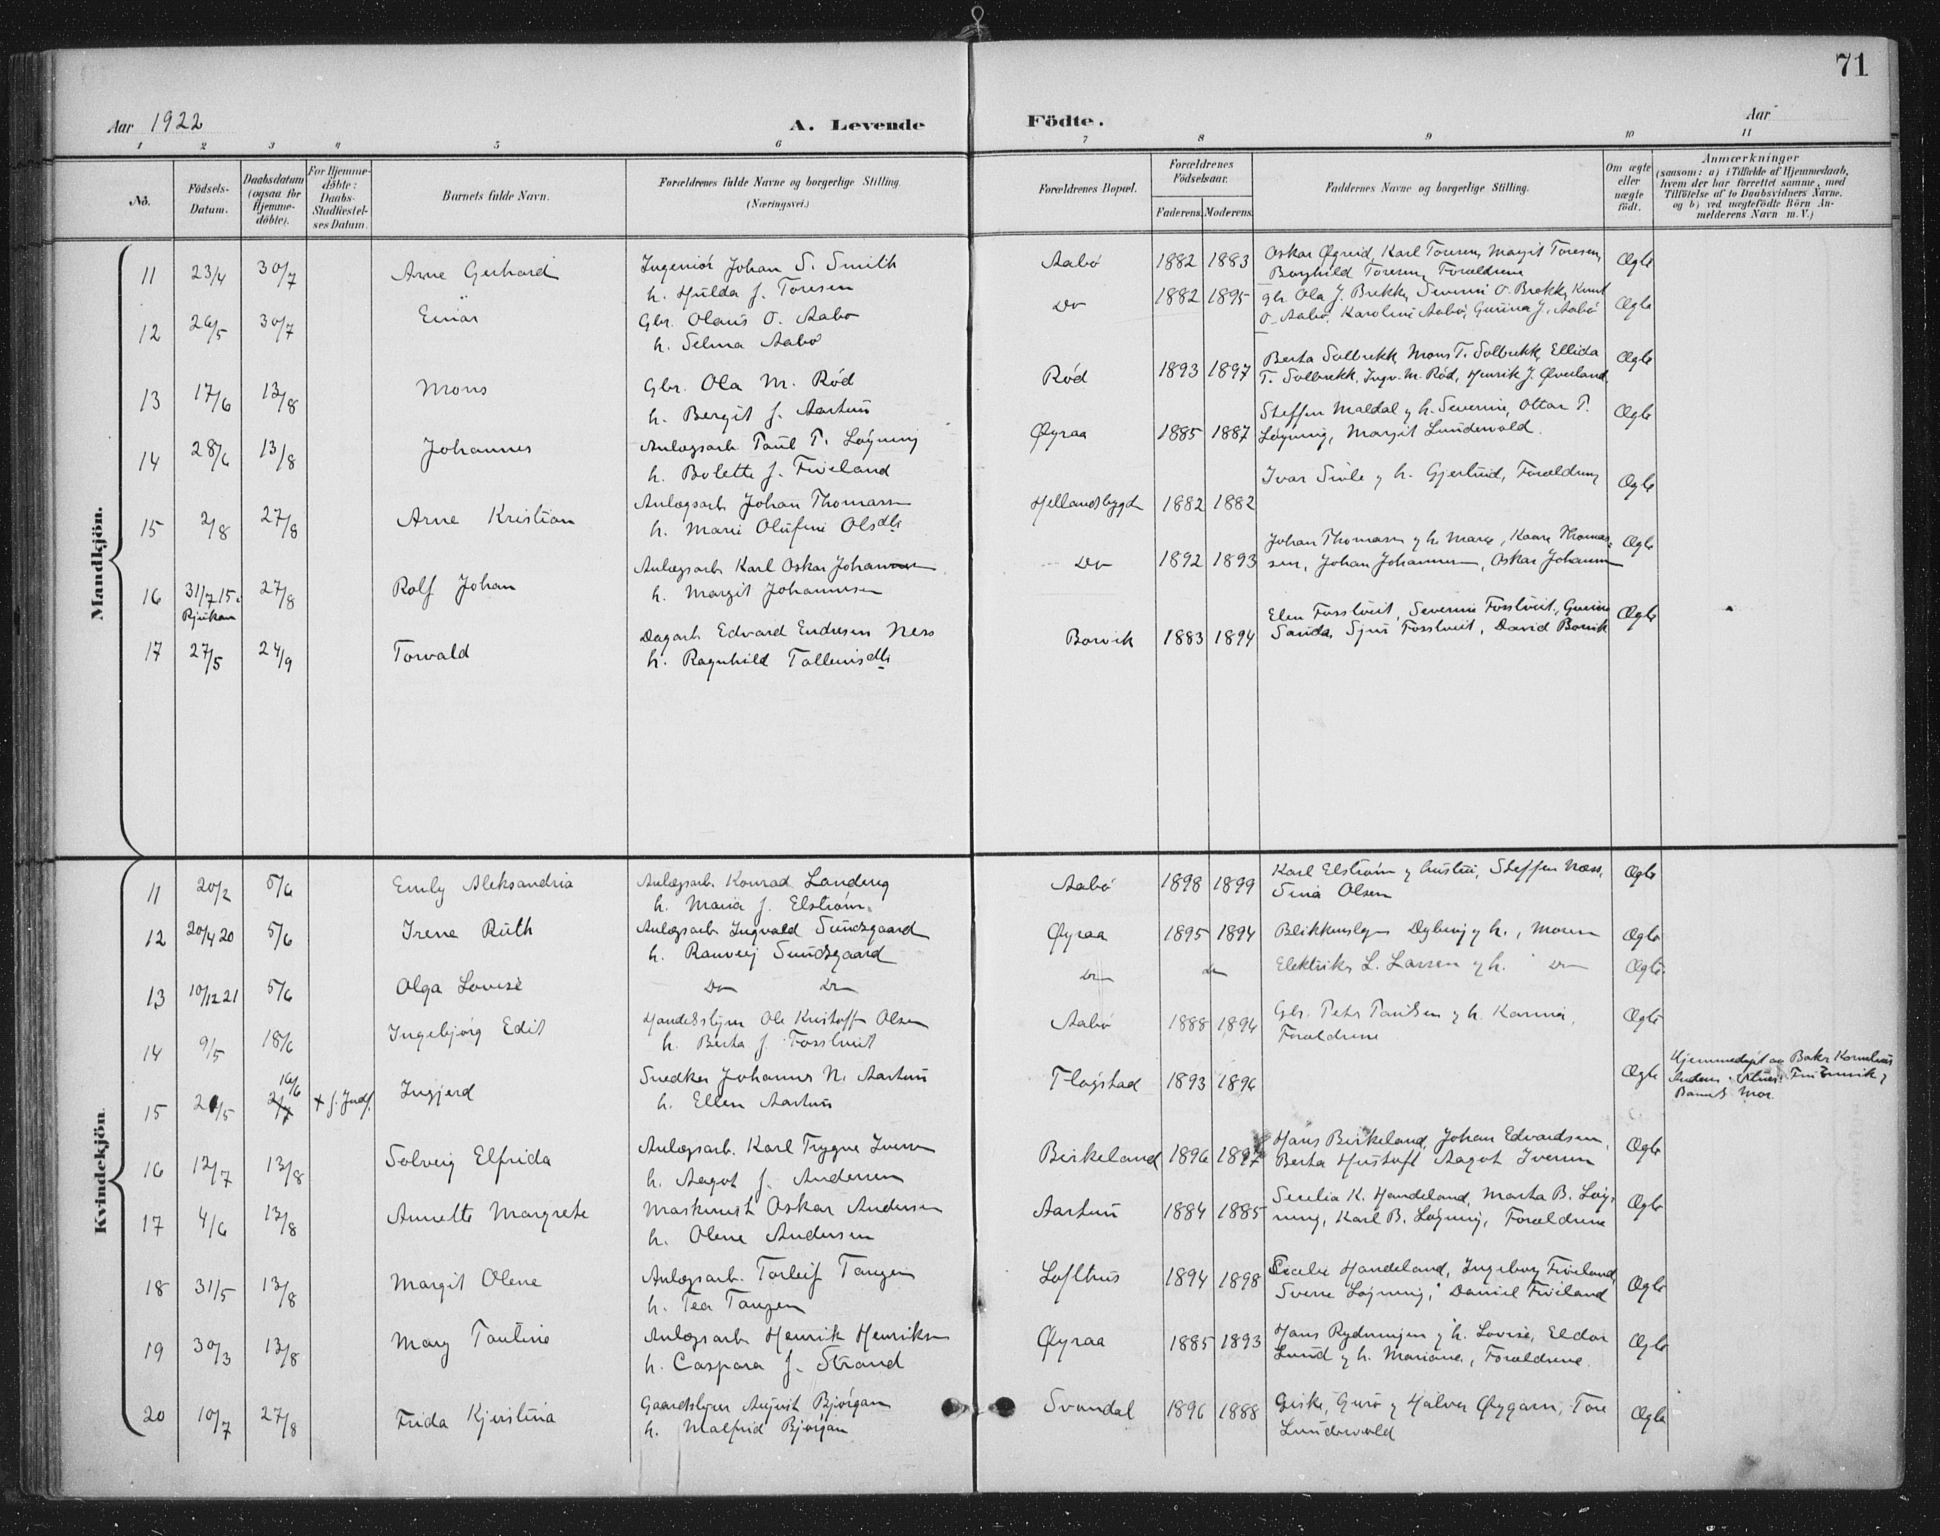 71
Aar 1922
A. Levende Födte.
Aar
1 2 3 4 5 6 7 8 9 10 11
No.
Födsels-Datum.
Daabsdatum (ogsaa for Hjemme-döbte).
For Hjemme-döbte: Daabs-Stadfæstel-ses Datum.
Barnets fulde Navn.
Forældrenes fulde Navne og borgerlige Stilling.
(Næringsvei.)
Forældrenes Bopæl.
Forældrenes Födselsaar.
Faderens. Moderens.
Faddernes Navne og borgerlige Stilling.
Om ægte eller uægte födt.
Anmærkninger
(saasom: a) i Tilfælde af Hjemmedaab,
hvem der har forrettet samme, med
Tilföielse af to Daabsvidners Navne.
og b) ved uægtefödte Börn An-
melderens Navn m. V.)
Mandkjön.
11 23/4 30/7 Arne Gerhard Ingeniör Johan S. Smith
h. Hulda f. Toresen
Aabö 1882 1883 Oskar Øgreid, Karl Toresen, Margit Toresen,
Borghild Toresen, Forældrene Ægte
12 26/5 30/7 Einar Gbr. Olaus O. Aabø
h. Selma Aabø
Do 1882 1895 gbr. Ola J. Brekke, Severin O. Brekke, Knut
O. Aabø, Karoline Aabø, Gurina J. Aabø Ægte
13 17/6 13/8 Mons Gbr. Ola M. Rød
h. Bergit f. Aartun
Rød 1893 1897 Berta Solbrekk, Mons T. Solbrekk, Ellida
T. Solbrekk, Ingv. M. Rød, Henrik J. Øverland Ægte
14 28/6 13/8 Johannes Anlægsarb. Paul T. Løyning
h. Bolette f. Fiveland
Øyraa 1885 1887 Steffen Maldal y h. Severine, Ottar P.
Løyning, Margit Lundevold. Ægte
15 2/8 27/8 Arne Kristian Anlægsarb. Johan Thomasen
h. Marie Olufine Olsdtr
Hellandsbygd 1882 1882 Ivar Sivle y h. Gjertrud, Forældrene Ægte
16 31/7 15. Rjukan 27/8 Rolf Johan Anlægsarb. Karl Oskar Johannesen
h. Margit Johannesen
Do 1892 1893 Johan Thomasen y h. Marie, Kaare Thomas-
sen, Johan Johannesen, Oskar Johannesen Ægte
17 27/5 24/9 Torvald Dagarb. Edvard Endresen Ness
h. Ragnhild Tollevisdtr
Borvik 1883 1894 Elen Fosstveit, Severine Fosstveit, Gurine
Sanda, Sjur Fosstveit, David Borvik Ægte
Kvindekjön.
11 20/2 5/6 Emly Aleksandria Anlægsarb. Konrad Landing
h. Maria f. Elstrøm.
Aabö 1898 1899 Karl Elstrøm y hustru, Steffen Næss,
Sina Olsen Ægte
12 20/4 20 5/6 Irene Ruth Anlægsarb. Ingvald Sundsgaard
h. Ranveig Sundsgaard
Øyraa 1895 1894 Blikkenslager Dybing y h., Moren Ægte
13 10/12 21 5/6 Olga Lovise Do Do
Do Do Elektriker L. Larsen y h. Do Ægte
14 9/5 18/6 Ingebjørg Edit Handelsstyrer Ole Kristoffer Olsen
h. Berta f. Fosstveit
Aabø 1888 1894 Gbr. Peter Paulsen y h. Karina,
Forældrene Ægte
15 21/5 16/6 2/7 + f. Indf. Ingjerd Snedker Johannes N. Aartun
h. Ellen Aartun
Fløgstad 1893 1896 Ægte Hjemmedøpt av Baker Kornelius
Barnets Mor
16 12/7 13/8 Solveig Elfrida Anlægsarb. Karl Trygve Iversen
h. Aagot f. Andersen
Birkeland 1896 1897 Hans Birkeland, Johan Edvardsen,
Berta Hustoft Aagot Iversen Ægte
17 4/6 13/8 Annette Margrete Maskinist Oskar Andersen
h. Olene Andersen
Aartun 1884 1885 Secelia K. Handeland, Marta B. Løy-
ning, Karl B. Løyning, Forældrene Ægte
18 31/5 13/8 Margit Olene Anlægsarb. Torleif Tangen
h. Tea Tangen
Lofthus 1894 1898 Secelie Handeland, Ingeborg Fiveland,
Sverre Løyning, Daniel Fiveland Ægte
19 30/3 13/8 Mary Pauline Anlægsarb. Henrik Henriksen
h. Caspara f. Strand
Øyraa 1885 1893 Hans Rydningen y h. Lovise, Eldor
Lund y h. Mariane, Forældrene. Ægte
20 10/7 27/8 Frida Kjerstina Gaardstyrer August Bjørgan
h. Malfrid Bjørgan
Svandal 1896 1888 Giske, Guro y Halvor Øygarn, Tore
Lundevold Ægte